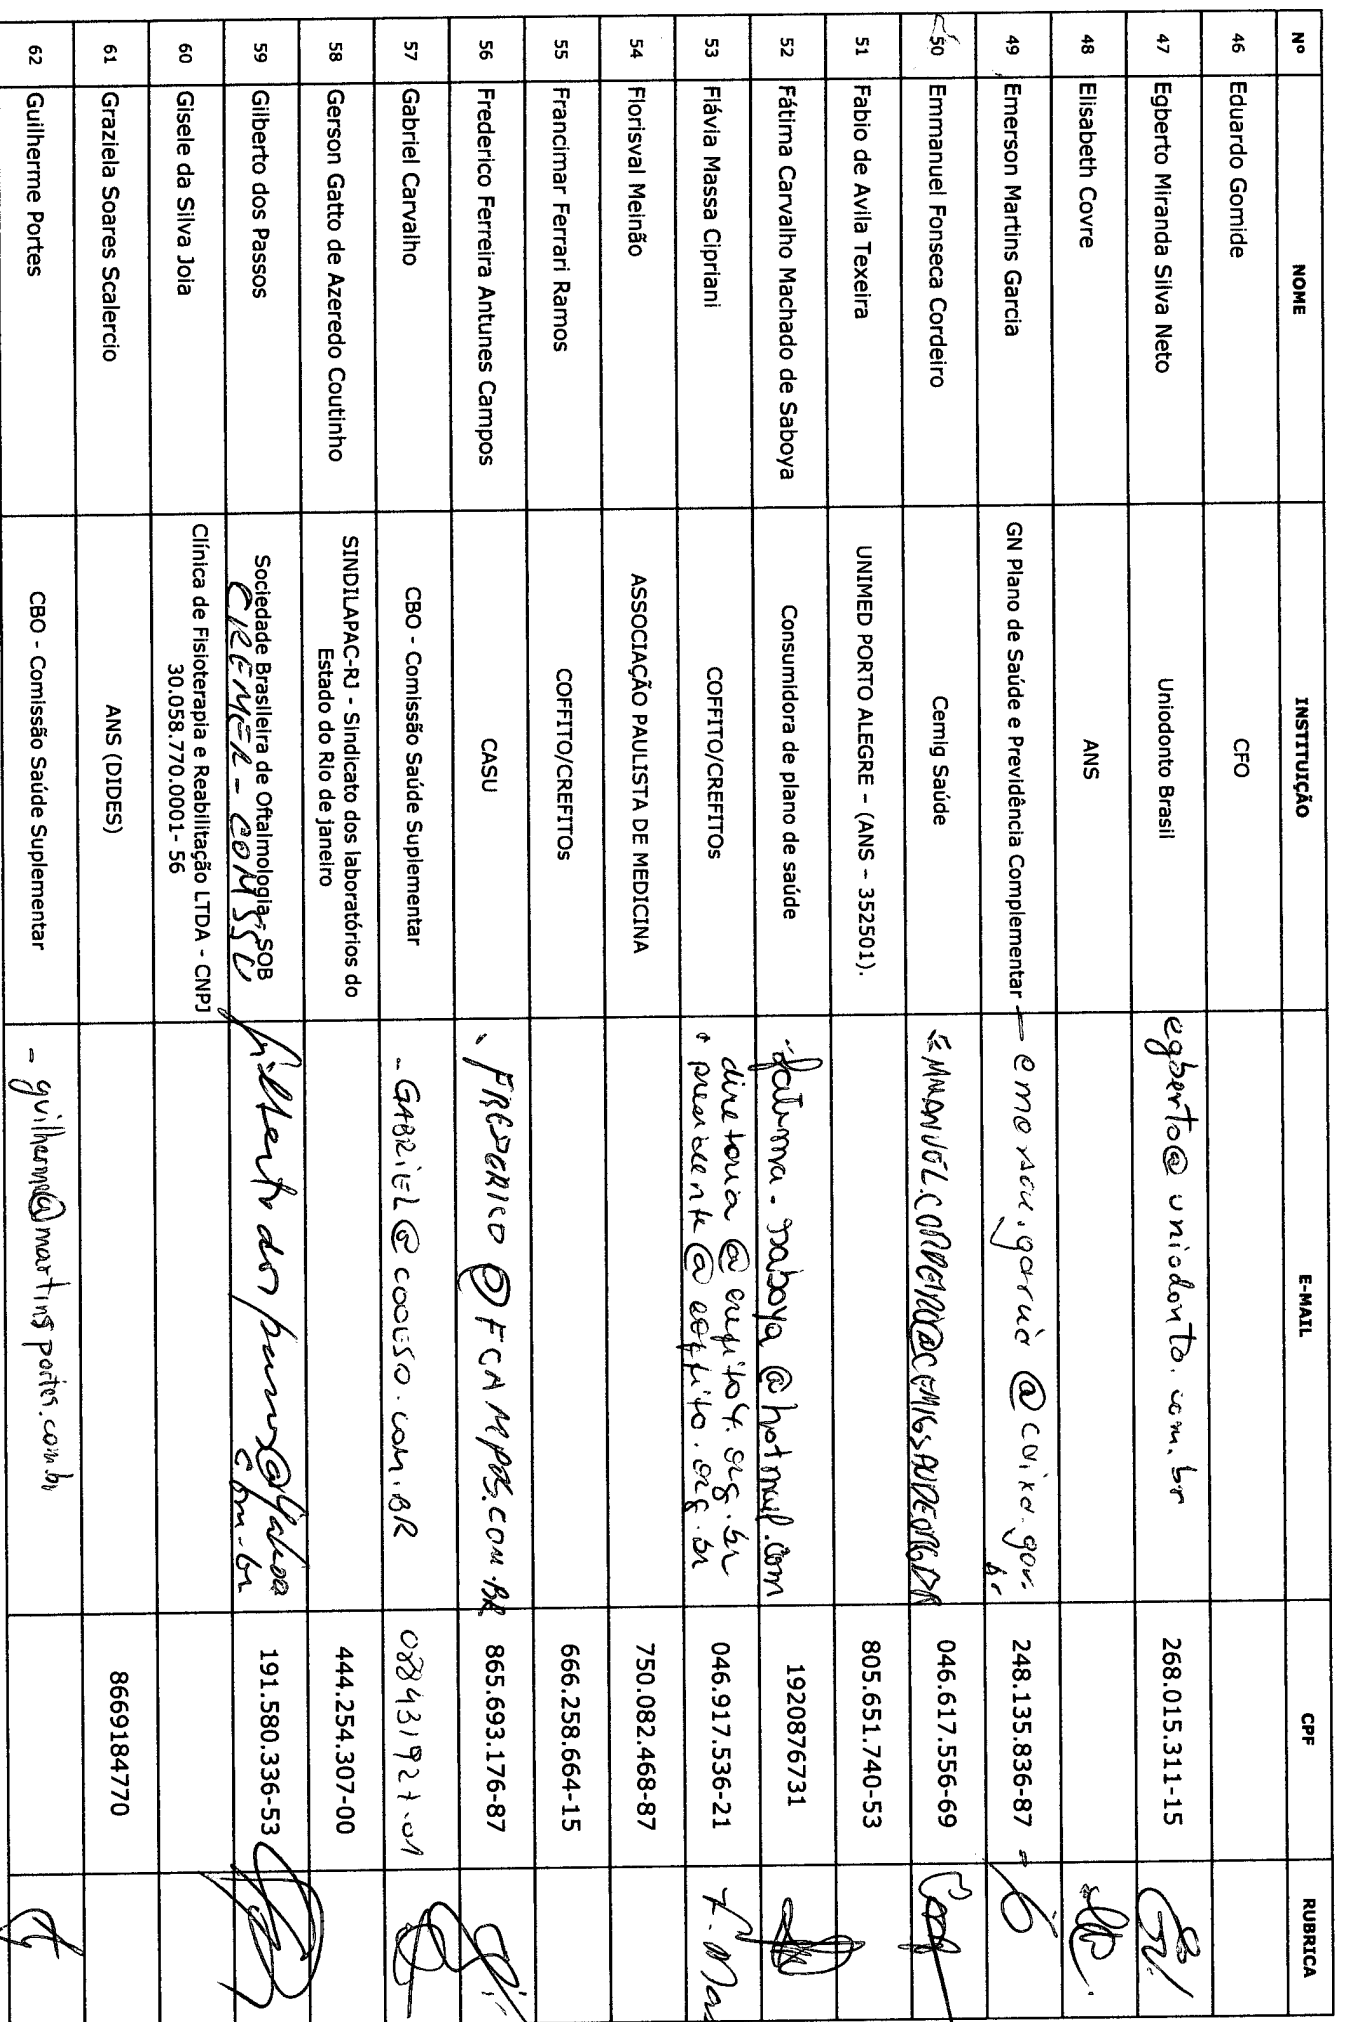 Nº NOME INSTITUIÇÃO E-MAIL CPF RUBRICA
46 Eduardo Gomide CFO
47 Egberto Miranda Silva Neto Uniodonto Brasil egberto@uniodonto.com.br 268.015.311-15
48 Elisabeth Covre ANS
49 Emerson Martins Garcia GN Plano de Saúde e Previdência Complementar - emerson.garcia@caixa.gov.br 248.135.836-87
50 Emmanuel Fonseca Cordeiro Cemig Saúde EMMANUEL.CORDEIRO@CEMIGSAUDE.ORG.BR 046.617.556-69
51 Fabio de Avila Texeira UNIMED PORTO ALEGRE – (ANS – 352501). 805.651.740-53
52 Fátima Carvalho Machado de Saboya Consumidora de plano de saúde fatima.saboya@hotmail.com 19208776731
53 Flávia Massa Cipriani COFFITO/CREFITOs diretoria@crefito4.org.br
presidente@coffito.org.br 046.917.536-21
54 Florisval Meinão ASSOCIAÇÃO PAULISTA DE MEDICINA 750.082.468-87
55 Francimar Ferrari Ramos COFFITO/CREFITOs 666.258.664-15
56 Frederico Ferreira Antunes Campos CASU FREDERICO@FCAMPOS.COM.BR 865.693.176-87
57 Gabriel Carvalho CBO - Comissão Saúde Suplementar - GABRIEL@COOESO.COM.BR 088431927-01
58 Gerson Gatto de Azeredo Coutinho SINDILAPAC-RJ - Sindicato dos laboratórios do
Estado do Rio de janeiro 444.254.307-00
59 Gilberto dos Passos Sociedade Brasileira de Oftalmologia - SOB
CREMER - COMSSU gilberto dos passos@ com.br 191.580.336-53
60 Gisele da Silva Joia Clínica de Fisioterapia e Reabilitação LTDA - CNPJ
30.058.770.0001- 56
61 Graziela Soares Scalercio ANS (DIDES) 8669184770
62 Guilherme Portes CBO - Comissão Saúde Suplementar - guilherme@martinsportes.com.br